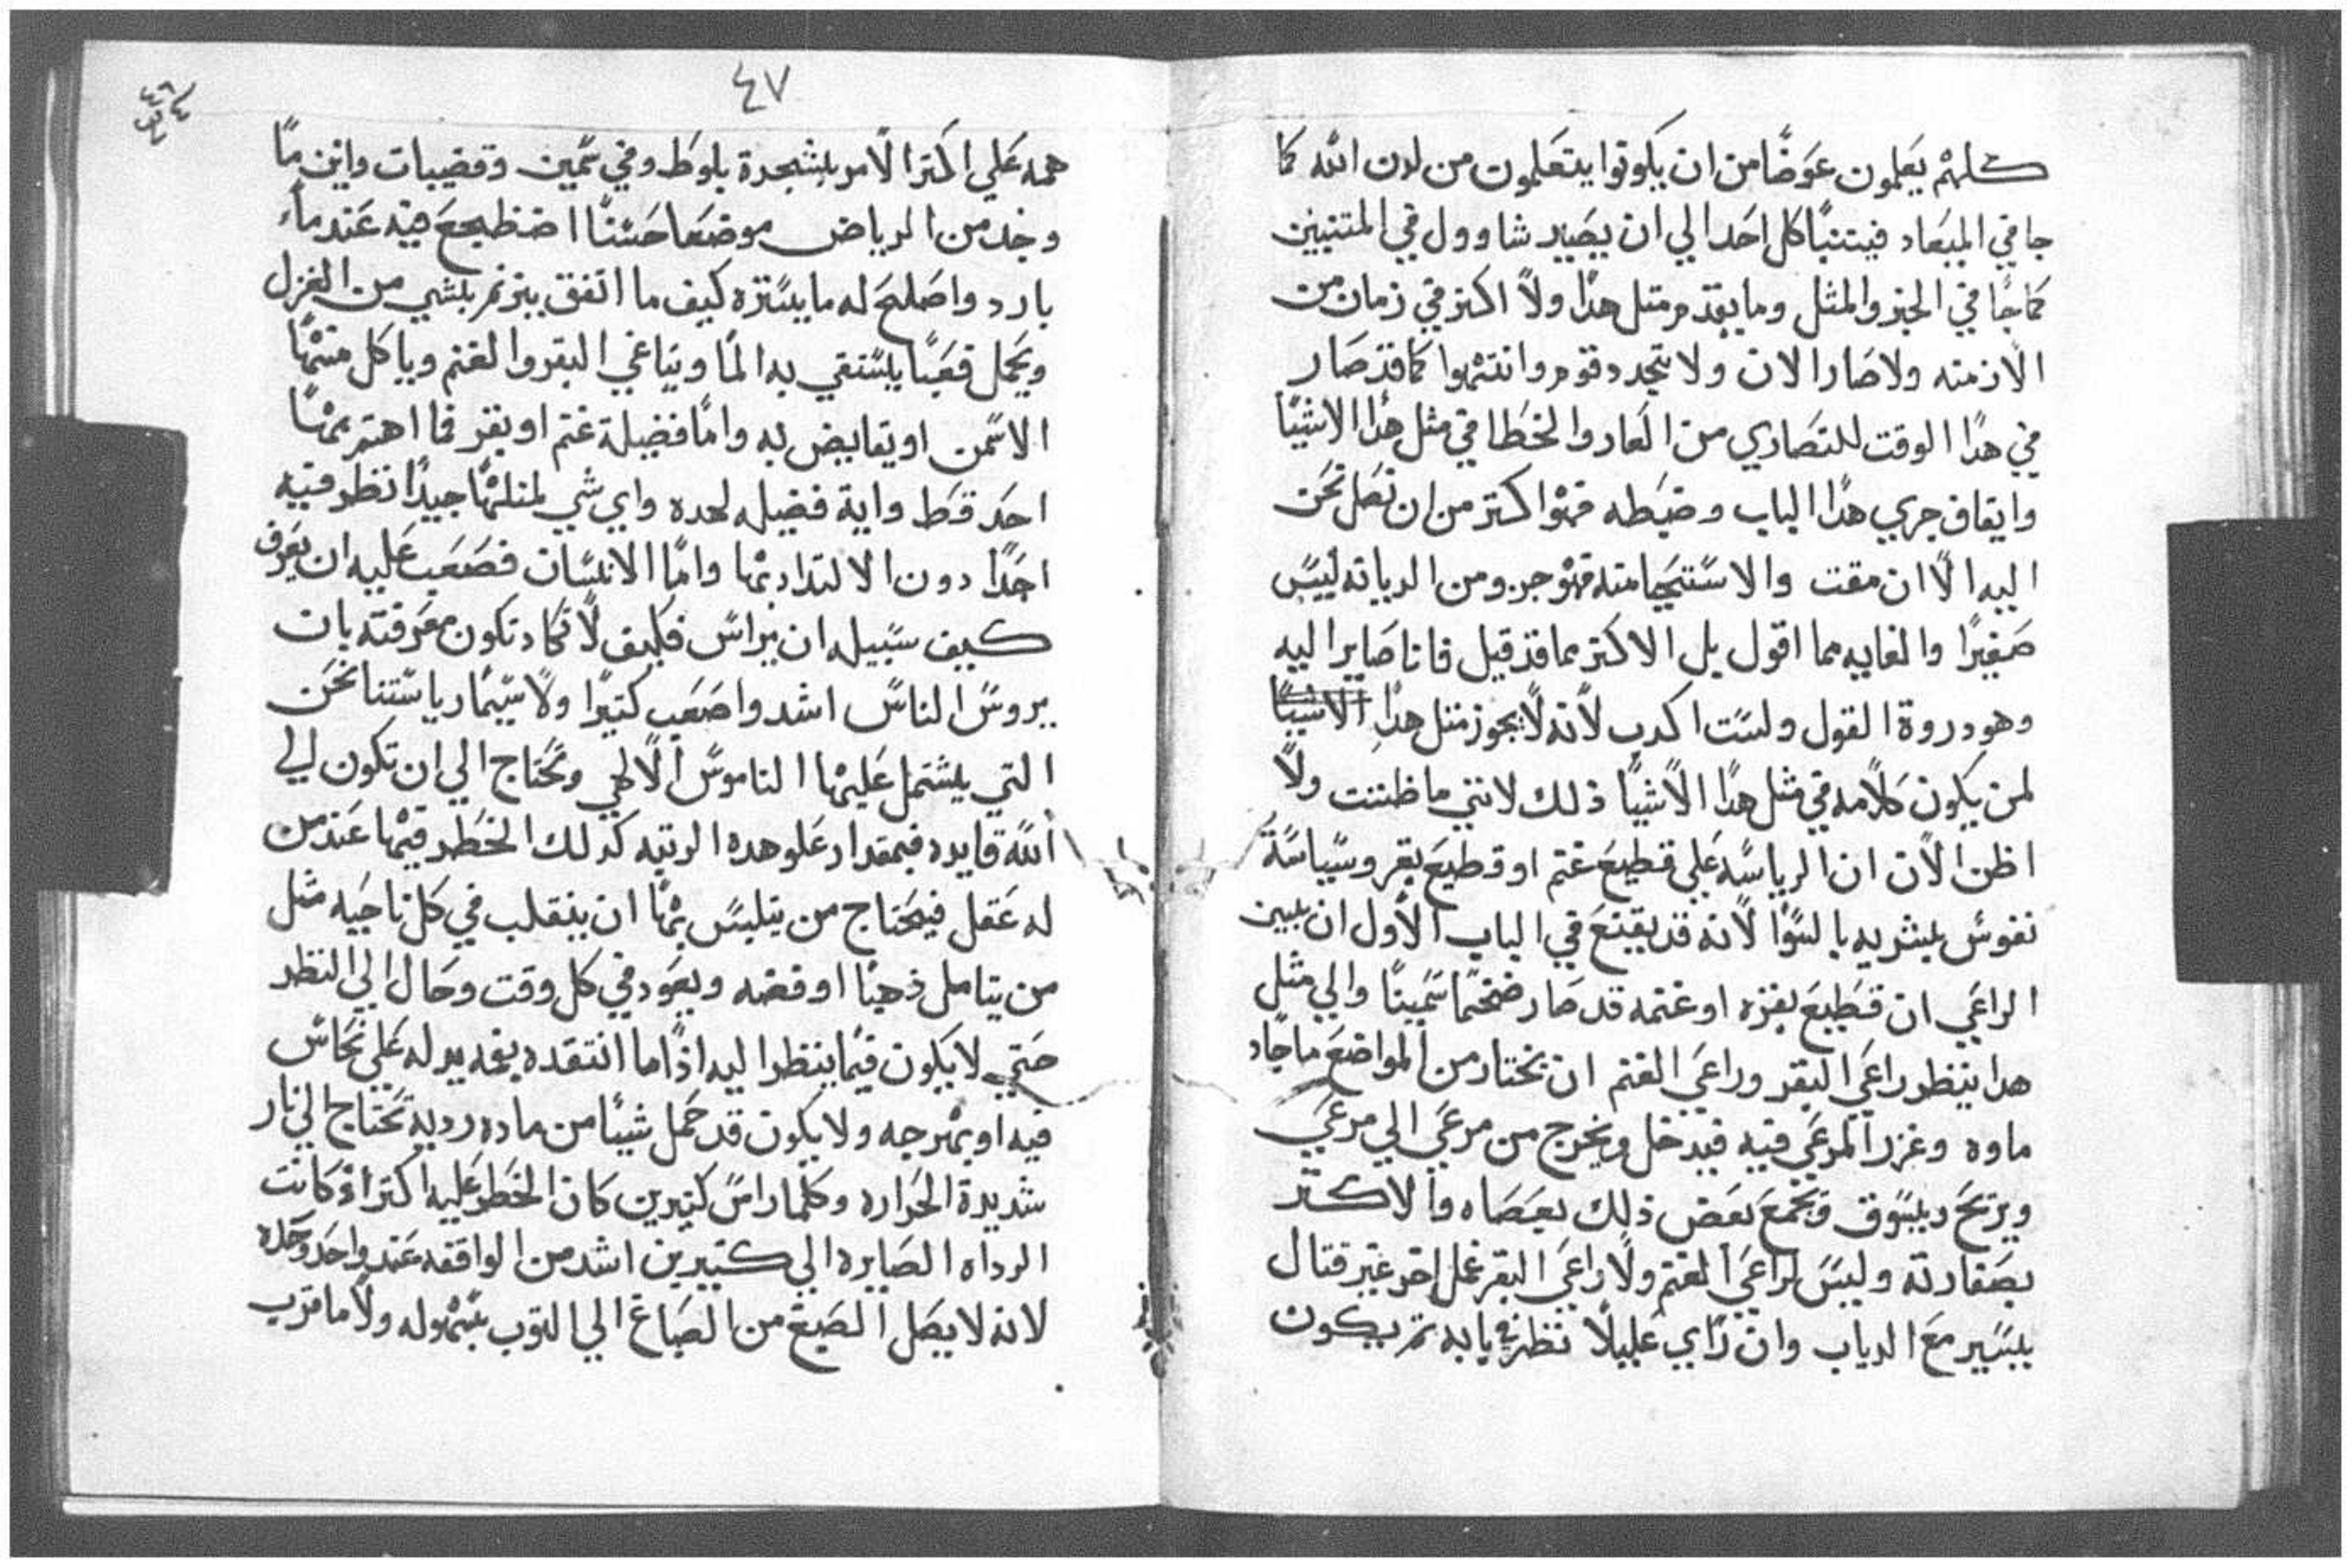 كلهم يعلمون عوضًا من ان يكونوا يتعلمون من لدن الله كما
جا في الميعاد فيتنبا كل احد الي ان يصير شاوول في المتنبيين
كما جا في الخبر والمثل وما يقدم مثل هدا ولا اكثر في زمان من
الازمنه ولا صار الان ولا تجدد قوم وانتهوا كما قد صار
في هدا الوقت للنصاري من العار والخطا في مثل هدا الاشيا
وايقاف جري هدا الباب وضبطه فهو اكتر من ان نصل نحن
اليه الا ان مقت والاستحيا منه فهو جزو من الديانه ليس
صغيرًا والغايه مما اقول بل الاكتر مما قد قيل فانا صاير اليه
وهو دروة القول ولست اكدب لانه لا يجوز متل هدا الاشيا
لمن يكون كلامه في مثل هدا الاشيا ذلك لانني ما ظننت ولا
اظن الان ان الرياسه علي قطيع غنم او قطيع بقر وسياسة
نفوس بشريه بالسوا لانه قد يقنع في الباب الاول ان يبين
الراعي ان قطيع بقره او غنمه قد صار ضخمًا سمينًا والي مثل
هدا ينظر راعي البقر وراعي الغنم ان يختار من المواضع ما جاد
ماوه وغزر المرعي فيه فيدخل ويخرج من مرعي الي مرعي
ويريح ويسوق ويجمع بعض ذلك بعصاه والاكتر
بصفارته وليس لراعي الغنم ولا راعي البقر عمل اخر غير قتال
يسير مع الدياب وان راي عليلًا نظر في بابه تم يكون
٤٧
همه علي اكتر الامر بشجرة بلوط وفي سمين وقضيبات واين ما
وجد من الرياض موضعا حسنًا اضطجع فيه عند ماء
بارد واصلح له ما يستره كيف ما اتفق يترنم بشي من الغزل
ويحمل قعبًا يستقي به الما ويناغي البقر والغنم وياكل منها
الاسمن او يقايض به واما فضيلة غنم او بقر فما اهتم بها
احد قط واية فضيله لهده واي شي لمثلها جيدًا نظر فيه
احدًا دون الالتداد بها واما الانسان فصعب عليه ان يعرف
كيف سبيله ان يراس فكيف لا تكاد تكون معرفته بان
يروس الناس اشد واصعب كتيرًا ولا سيما رياستنا نحن
التي يشتمل عليها الناموس الالهي وتحتاج الي ان تكون الي
الله قايده فبمقدار علو هده الرتبه كدلك الخطر فيها عند من
له عقل فيحتاج من يتلبس بها ان يتقلب في كل ناحيه مثل
من يتامل ذهبًا او فضه ويعود في كل وقت وحال الي النظر
حتي لا يكون فيما ينظر اليه اذا ما انتقده بغه يدله علي نحاس
فيه او بهرجه ولا يكون قد حمل شيئا من ماده رديه تحتاج الي نار
شديدة الحراره وكلما راس كتيرين كان الخطر عليه اكتر اذ كانت
الرداه الصايره الي كتيرين اشد من الواقفه عند واحد وحده
لانه لا يصل الصبغ من الصباغ الي التوب بسهوله ولا ما قرب